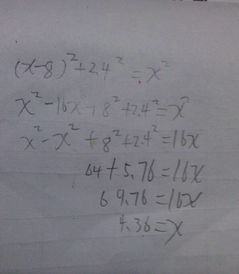 (x-8)²+2.4²=x²
x²-16x+8²+2.4²=x²
x²-x²+8²+2.4²=16x
64+5.76=16x
69.76=16x
4.36=x